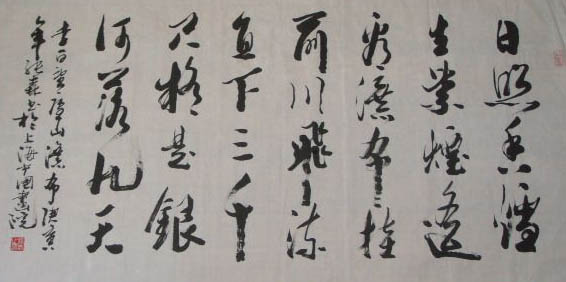 日照香爐
生紫煙遥
看瀑布挂
前川飛流
直下三千
尺疑是銀
河落九天
李白望廬山瀑布庚寅
年張森書於上海中國畫院